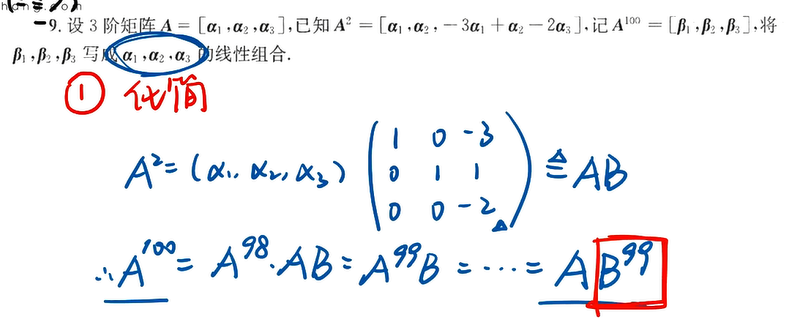 9. 设 3 阶矩阵 A = [α₁,α₂,α₃],已知 A² = [α₁,α₂,-3α₁+α₂-2α₃],记 A¹⁰⁰ = [β₁,β₂,β₃],将
β₁,β₂,β₃ 写成 α₁,α₂,α₃ 的线性组合.
① 化简
A² = (α₁, α₂, α₃) ( 1 0 -3
0 1 1
0 0 -2 ) ≜ AB
∴ A¹⁰⁰ = A⁹⁸·AB = A⁹⁹B = ⋯ = AB⁹⁹